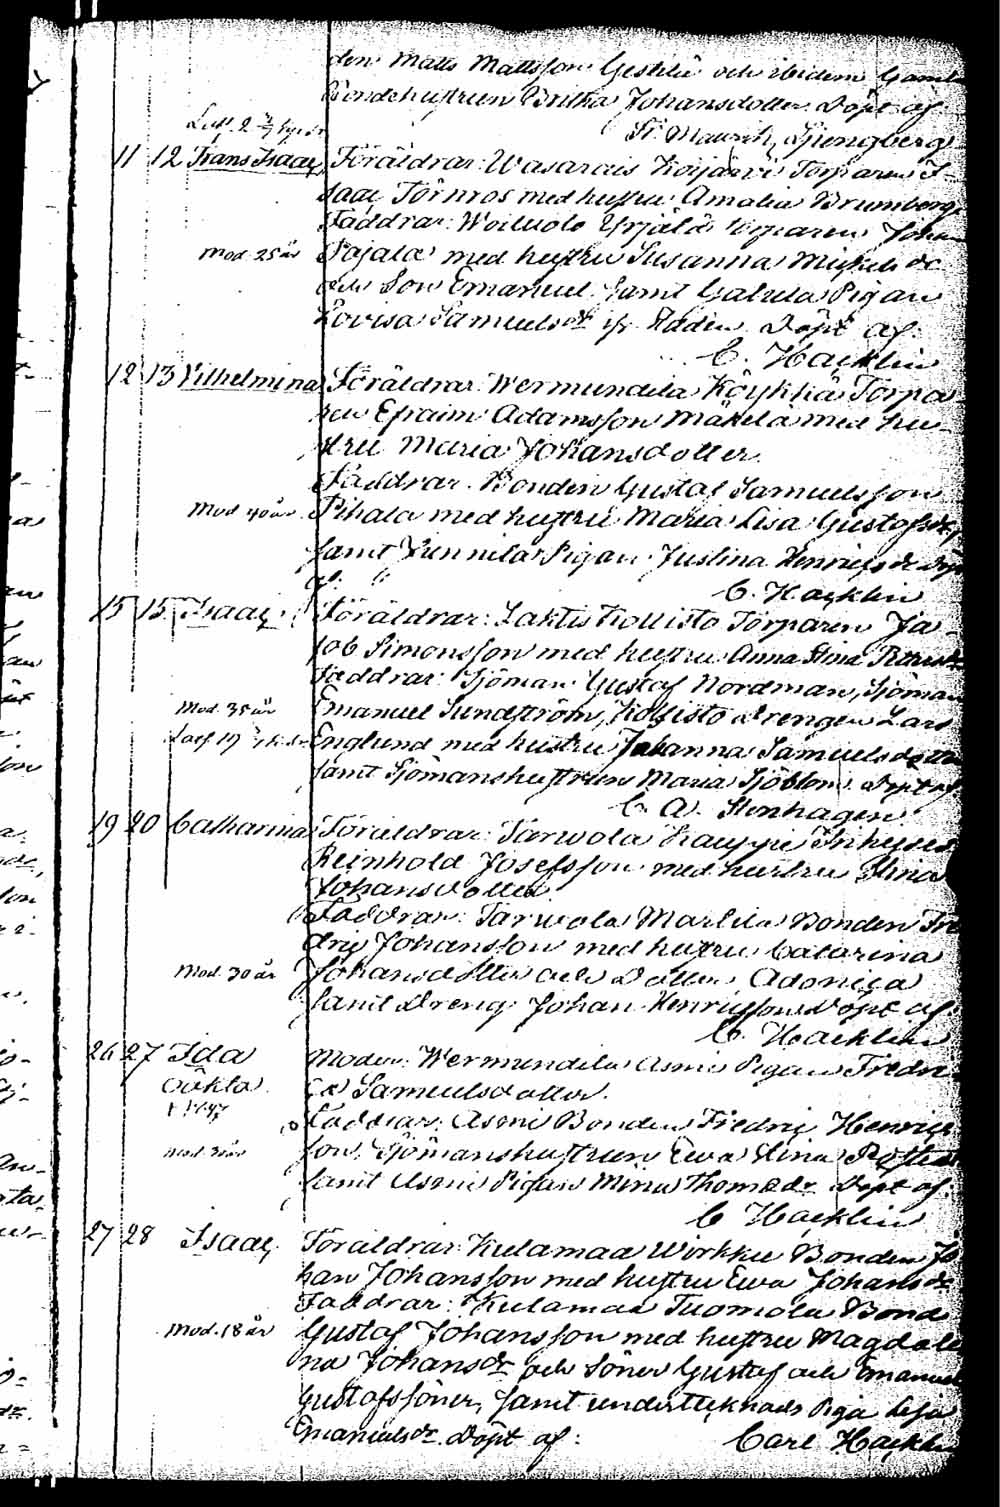 den Matts Mattsson Gestilä och ibidem Gamla
Bondehustrun Britha Johansdotter. Döpt af
Fr. Maurith Ljungberg
11 12 Frans Isaac Föräldrar: Wasarais Koijärvi Torparen I-
saac Törnros med hustru Amalia Brumberg
Faddrar: Woiluoto Yrjälä Torparen Johan
Mod. 25 år Pajala med hustru Susanna Michels dr
och Son Emanuel, samt Pigan
Lovisa Samuelsdr Döpt af:
C. Hacklin
12 13 Vilhelmina Föräldrar: Wermundila Köykkä Torpa-
ren Efraim Adamsson Mäkelä med hu-
stru Maria Johansdotter.
Faddrar: Bonden Gustaf Samuelsson
Mod 40 år Pihala med hustru Maria Lisa Gustafsdr,
samt Pigan Justina Henriksdr Döpt
af: C. Hacklin
15 15 Isaac Föräldrar: Laktis Kollisto Torparen Ja-
kob Simonsson med hustru Anna Stina
Faddrar: Sjöman Gustaf Nordman, Sjöman
Mod. 35 år Emanuel Sundström, Kollisto Drengen Lars
Englund med hustru Johanna Samuelsdotter
samt Sjömanshustrun Maria Sjöblom. Döpt af
C. A. Stenhagen
19 20 Catharina Föräldrar: Tarwola Kauppi Inhyses
Reinhold Josefsson med hustru Stina
Johansdotter
Faddrar: Tarwola Markila Bonden Fre
dric Johansson med hustru Catarina
Mod. 30 år Johansdotter och Dotter Adonica
samt Dreng Johan Henricsson Döpt af:
C. Hacklin
26 27 Ida Moder: Wermundila Asmi Pigan Fredri-
Oäkta ca Samuelsdotter.
Faddrar: Asmi Bonden Fredric Henrics
son, Sjömanshustrun Ewa Stina
samt Asmi Pigan Mina Thomasdr Döpt af:
C Hacklin
27 28 Isaac Föräldrar: Kulamaa Wirkku Bonden Jo
han Johansson med hustru Ewa Johansdr
Faddrar: Kulamaa Tuomola Bond
Mod. 18 år Gustaf Johansson med hustru Magdale
na Johansdr och Söner Gustaf och Emanuel
Gustafssöner, samt undertecknads Piga Lisa
Emanuelsdr. Döpt af: Carl Hacklin